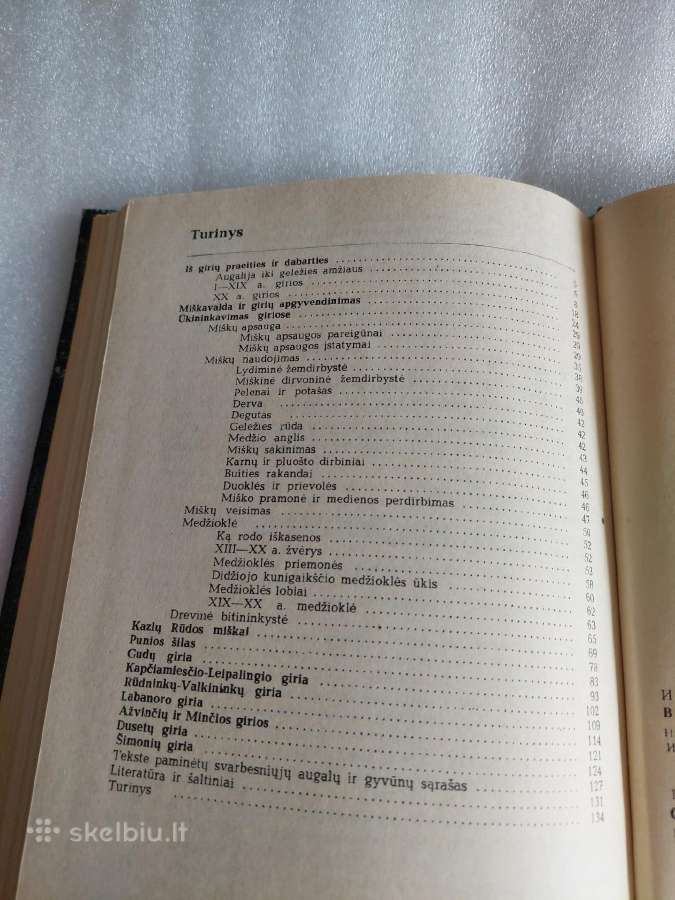 Turinys
Iš girių praeities ir dabarties 5
Augalija iki geležies amžiaus
I—XIX a. girios
XX a. girios
Miškavalda ir girių apgyvendinimas
Ūkininkavimas giriose
Miškų apsauga
Miškų apsaugos pareigūnai
Miškų apsaugos įstatymai
Miškų naudojimas
Lydiminė žemdirbystė
Miškinė dirvoninė žemdirbystė
Pelenai ir potašas
Derva
Degutas
Geležies rūda 42
Medžio anglis 43
Miškų sakinimas 44
Karnų ir pluošto dirbiniai 45
Buities rakandai 46
Duoklės ir prievolės 46
Miško pramonė ir medienos perdirbimas 47
Miškų veisimas 50
Medžioklė 52
Ką rodo iškasenos 52
XIII—XX a. žvėrys 53
Medžioklės priemonės 58
Didžiojo kunigaikščio medžioklės ūkis 60
Medžioklės lobiai 62
XIX—XX a. medžioklė 63
Drevinė bitininkystė 65
Kazlų Rūdos miškai 69
Punios šilas 78
Gudų giria 83
Kapčiamiesčio-Leipalingio giria 93
Rūdninkų-Valkininkų giria 102
Labanoro giria 109
Ažvinčių ir Minčios girios 114
Dusetų giria 121
Šimonių giria 124
Tekste paminėtų svarbesniųjų augalų ir gyvūnų sąrašas 127
Literatūra ir šaltiniai 131
Turinys 134
skelbiu.lt